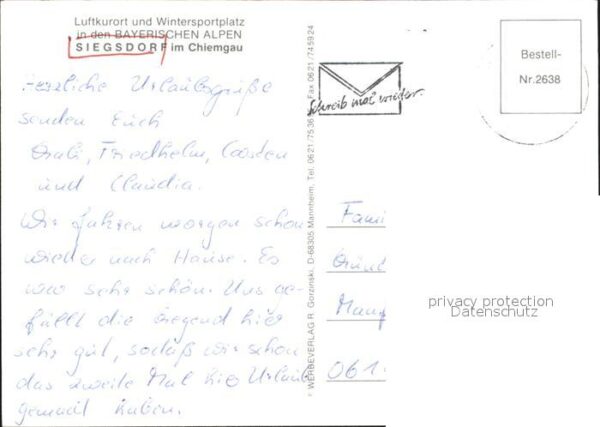 Luftkurort und Wintersportplatz
in den BAYERISCHEN ALPEN
SIEGSDORF im Chiemgau
Herzliche Urlaubsgrüße
senden Euch
Friedhelm, Carsten
und Claudia.
Wir fahren morgen schon
wieder nach Hause. Es
war sehr schön. Uns ge-
fällt die Gegend hier
sehr gut, sodaß wir schon
das zweite Mal hier Urlaub
gemacht haben.
© WERBEVERLAG R. Gorzinski, D-68305 Mannheim, Tel. 06 21 / 75 36 Fax 06 21 / 74 59 24
Schreib mal wieder.
Bestell-
Nr. 2638
Fami
061
privacy protection
Datenschutz